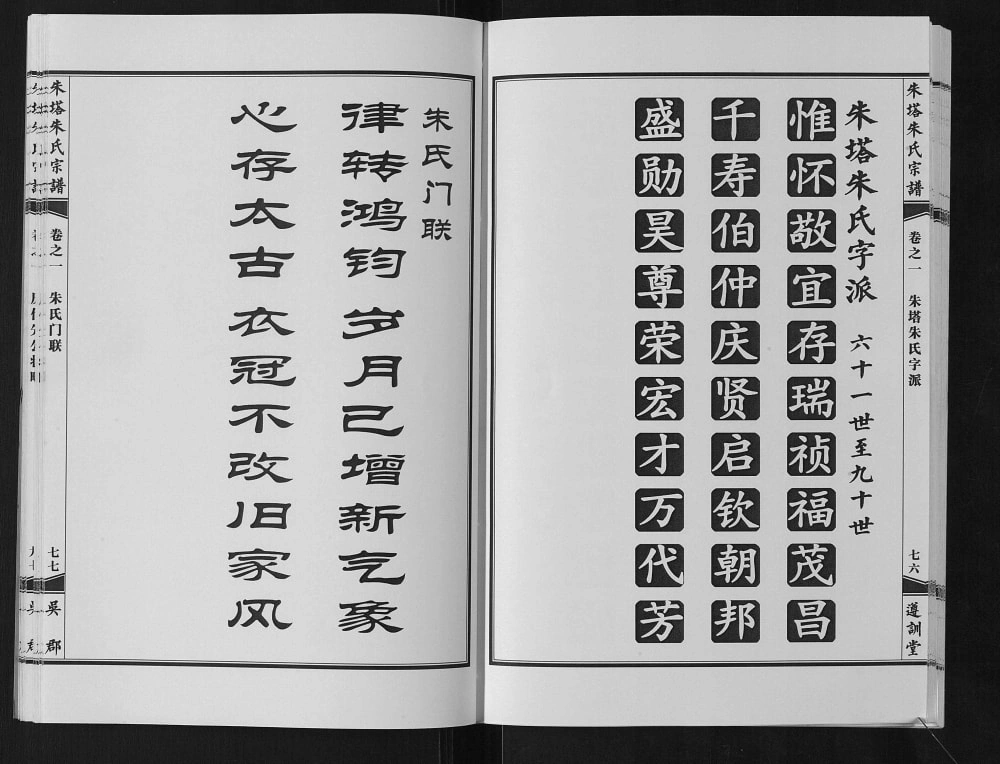 朱塔朱氏宗譜
卷之一
朱塔朱氏字派
七六
遵訓堂
朱塔朱氏字派 六十一世至九十世
惟怀敬宜存瑞祯福茂昌
千寿伯仲庆贤启钦朝邦
盛勋昊尊荣宏才万代芳
朱氏门联
律转鸿钧岁月已增新气象
心存太古衣冠不改旧家风
朱塔朱氏宗譜
卷之一
朱氏门联
七七
吴郡